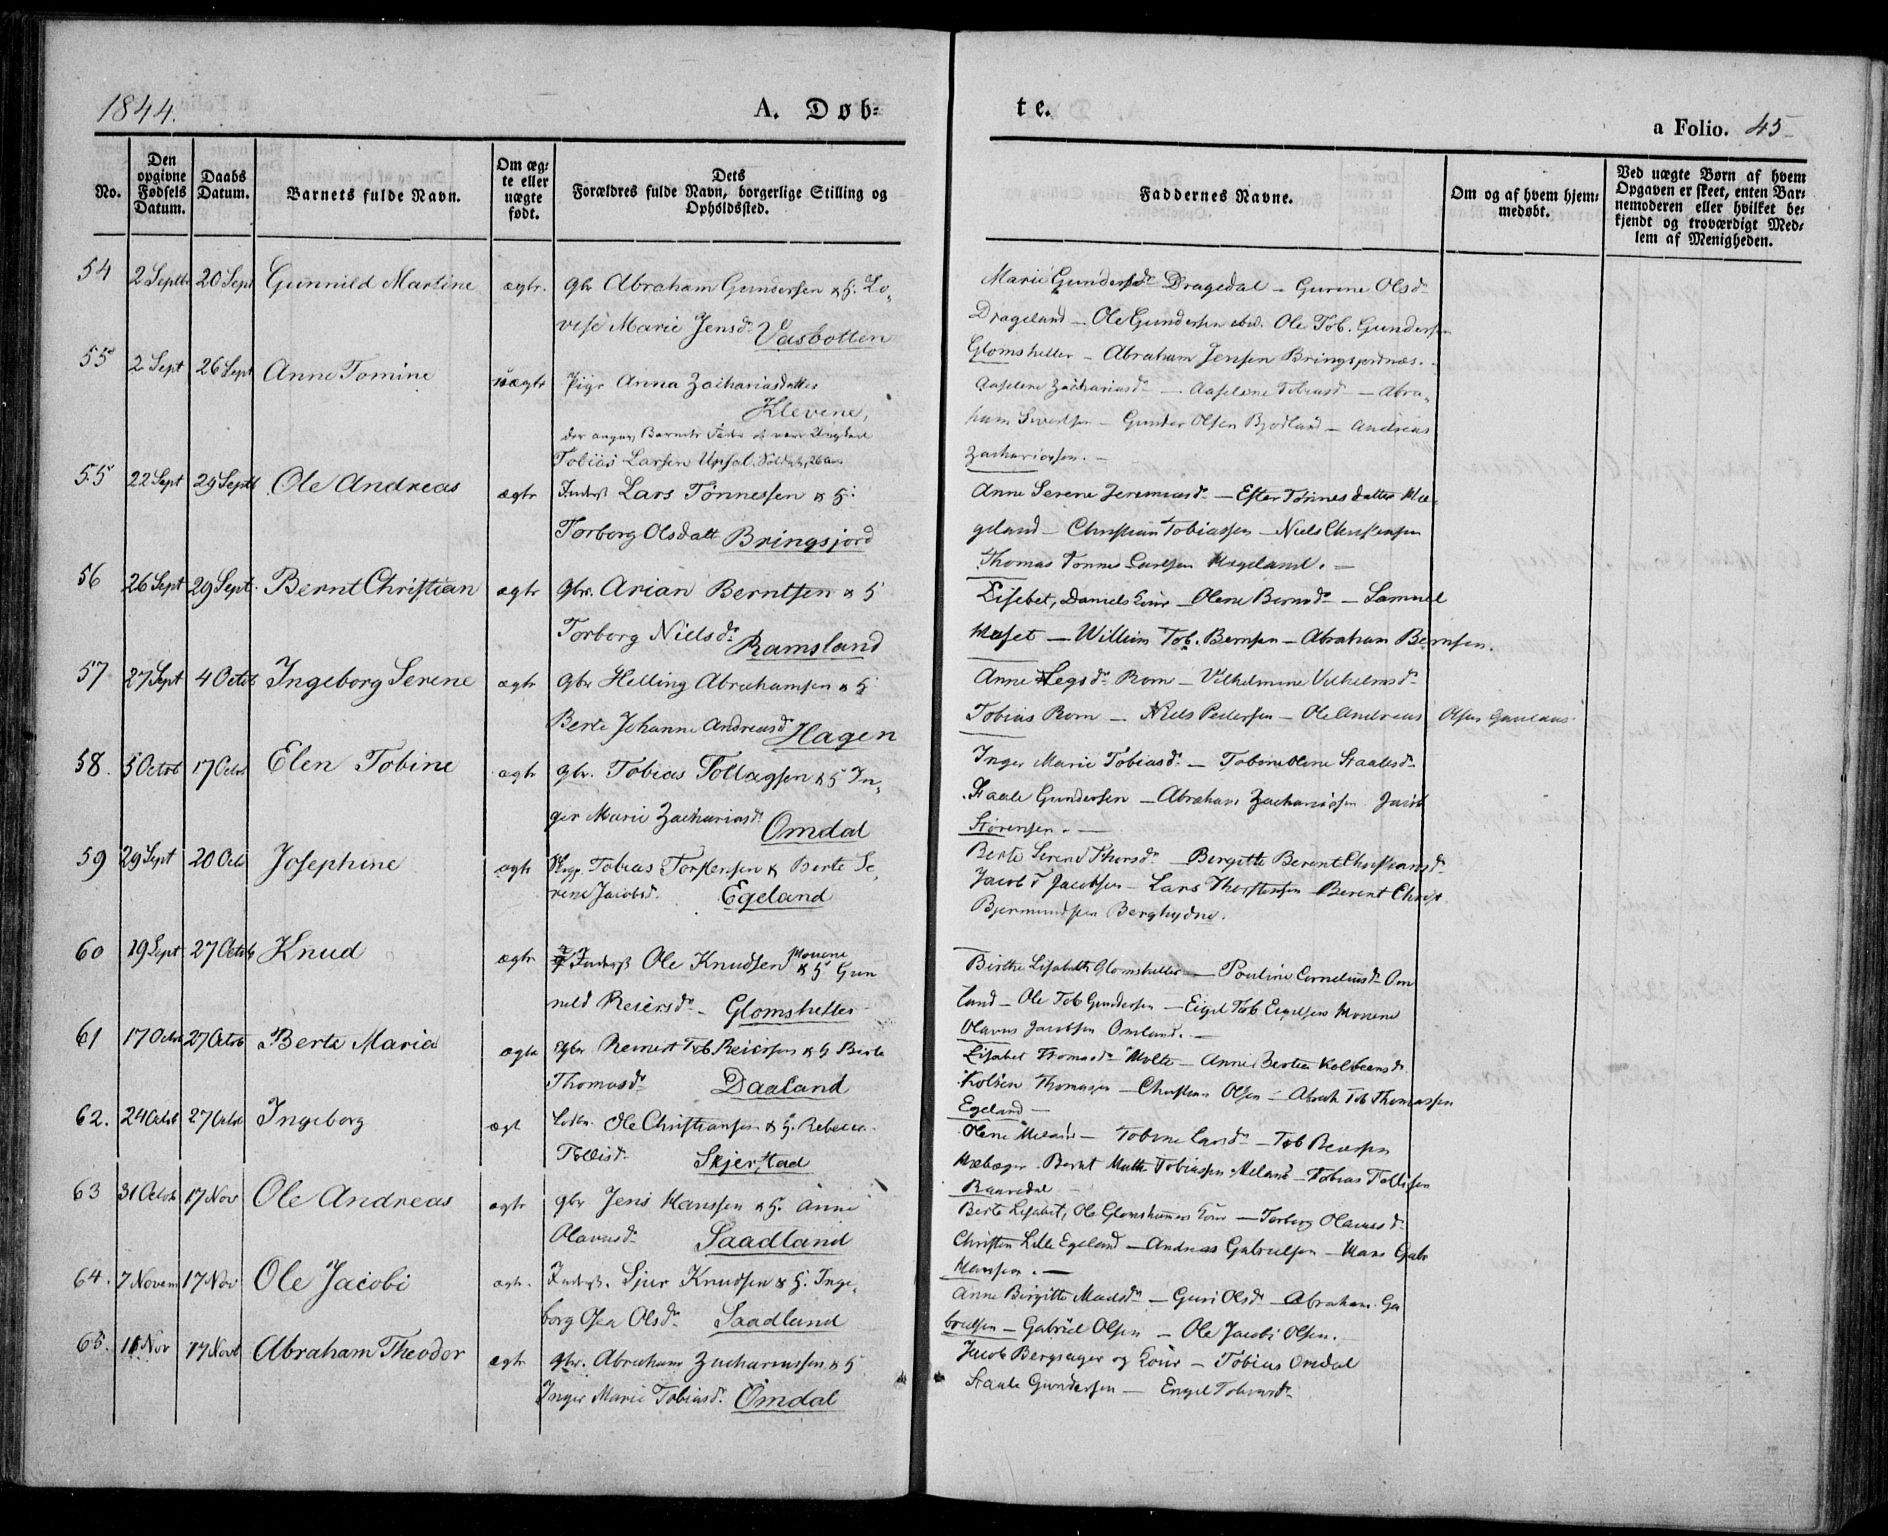 1844.
A. Døb=
te.
a Folio. 45
No.
Den opgivne Fødsels Datum.
Daabs Datum.
Barnets fulde Navn.
Om æg= te eller uægte født.
Dets Forældres fulde Navn, borgerlige Stilling og Opholdssted.
Faddernes Navne.
Om og af hvem hjem= medøbt.
Ved uægte Børn af hvem Opgaven er skeet, enten Bar= nemoderen eller hvilket be= kjendt og troværdigt Med= lem af Menigheden.
54 2 Septbr 20 Sept Gunnild Martine ægtr. gbr Abraham Gundersen & H. Lo-
vise Marie Jensdr Vasbotten
Marie Gundersdr Dragedal – Gurine Olsdr
Drageland – Ole Gundersen ibid. Ole Tob. Gundersen
Glomsheller – Abraham Jensen Bringsjordnæs.
55 2 Sept 26 Sept Anne Tomine uægtr Pige Anna Zachariasdatter
Klevene,
der angav Barnets Fader at være Ungkarl
Tobias Larsen Upsal. Soldat, 26 Aar
Aaselene Zachariasdr – Aaselene Tobiasd – Abra-
ham Sivertsen – Gunder Olsen Bjodland – Andreas
Zachariassen. –
55 22 Sept 29 Septb Ole Andreas ægtr Inderst Lars Tønnessen & H:
Torborg Olsdatt Bringsjord
Anne Serene Jeremiasdr – Ester Tønnesdatter Hæ-
geland – Christian Tobiassen – Niels Christensen
Thomas Tønnes Larsen Hægeland. –
56 26 Sept 29 Sept. Bernt Christian ægtr gbr. Arian Berntsen & H
Torborg Nielsdr Ramsland
Lisebet, Daniels Kone – Olene Berntsdr – Samuel
Huset – Willum Tob. Bernsen – Abraham Bernsen.
57 27 Sept 4 Octob Ingeborg Serene ægtr gbr Helling Abrahamsen & H
Berte Johanne Andreasdr Hagen
Anne Aegsdr Rom – Vilhelmine Vilhelmsdr
Tobias Rom – Niels Pedersen – Ole Andreas Olsen
58. 5 Octob 17 Octob Elen Tobine ægtr gbr. Tobias Tollagsen & H In-
ger Marie Zachariasdr Omdal
Inger Marie Tobiasdr – Tobine Olene Staalesdr
Staale Gundersen – Abraham Zachariasen Jacob
Sørensen. –
59 29 Sept 20 Oct Josephine ægtr Tobias Torstensen & Berte Se-
rene Jacobsd. Egeland
Berte Serene Thorsdr – Birgitte Berent Christiansdr
Jacob T Jacobsen – Lars Thorstensen – Berent Christ.
Bjermundsen
60 19 Sept 27 Octob Knud ægtr Inderst Ole Knudsen Movene & H Gun
nild Reiersdr – Glomsheller
Birthe Lisabeth Glomsheller – Pouline Corneliusdr Om
land – Ole Tob Gundersen – Eigel Tob Eigelsen Movene
Olavus Jacobsen Omland. –
61 17 Octob 27 Octob Berte Maria ægtr gbr Reinert Tob Reiersen & H Berte
Thomasdr Daaland
Lisabet Thomasdr – Anne Bertea Kolbeensdr
Kolben Thomasen – Christian Olsen – Abrah Tob Thomassen
Egeland –
62. 24 Octob 27 Octob Ingeborg ægt Ole Christiansen & H. Rebecca
Tollisdr Skjerstad
Olene – Tobine Larsdr – Tob Reiersen
Bernt Tobiassen – Tobias Tollisen
63 31 Octob 17 Nov Ole Andreas ægtr gbr Jens Hanssen & H. Anne
Olavusdr Saadland
Berte Lisabet, Ole Kone – Torborg Olavusdr
Christen Lille Egeland – Andreas Gabrielsen – Hans Gabr
Hansen. –
64. 7 Novem 17 Nov Ole Jacobi ægtr. Inderst. Sjur Knudsen & H. Inge-
borg Osea Olsdr Saadland
Anne Birgitte Madsdr – Guri Olsdr – Abraham Ga
brielsen – Gabriel Olsen – Ole Jacobi Olsen. –
65. 11 Nov 17 Novb Abraham Theodor ægtr gbr. Abraham Zachariassen & H
Inger Marie Tobiasdr. Omdal
Jacob Bergsager og Kone – Tobias Omdal
Staale Gundersen –